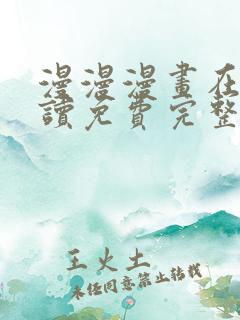 漫漫漫畫在
讀免費完整
王火土
未经同意禁止转载